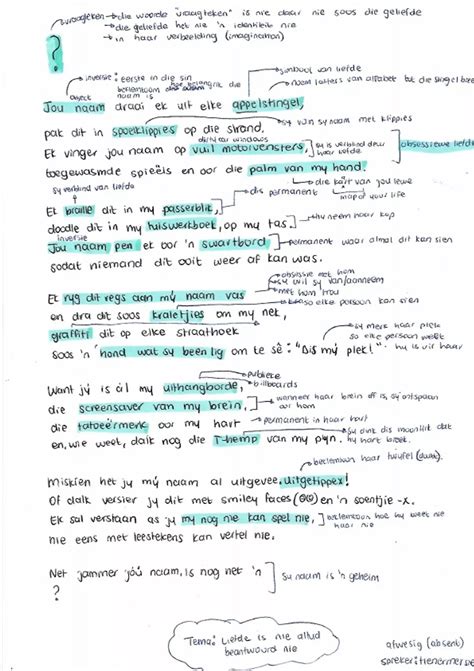 vraagteken → die woorde "vraagteken" is nie daar nie soos die geliefde
→ die geliefde het nie 'n identiteit nie
→ in haar verbeelding (imagination)
?
inversie: eerste in die sin
beklemtoon hoe belangrik die
naam is
object
symbool van liefde
noem letters van alfabet tot die stingel
Jou naam draai ek uit elke appelstingel,
sy win sy naam met klippies
pak dit in spoelklippies op die strand,
dirty car windows
Ek vinger jou naam op vuil motorvensters,
sy is verblind deur haar liefde
obsessiewe liefde
toegewasmde spieëls en oor die palm van my hand.
sy verblind van liefde
die kaart van jou lewe
map of your life
dis permanent
Ek braille dit in my passerblik,
doodle dit in my huiswerkboek, op my tas.
inversie
Jou naam pen ek oor 'n swartbord
permanent waar almal dit kan sien
sodat niemand dit ooit weer af kan was.
obsessie met hom
sy wil sy van aanneem
met hom trou
Ek ryg dit regs aan my naam vas
so elke persoon kan sien
en dra dit soos kraletjies om my nek,
graffiti dit op elke straathoek
sy merk haar plek
so elke persoon weet
hy is vir haar
soos 'n hond wat sy been lig om te sê: "Dis my plek!"
publieke
billboards
Want jý is ál my uithangborde,
die screensaver van my brein,
wanneer haar brein off is, sy ontspan
oor hom
die tatoeërmerk oor my hart
permanent in haar hart
en, wie weet, dalk nog die T-hemp van my pyn.
sy dink dis moontlik dat
hy hart breek
beklemtoon haar twyfel
Miskien het jy mý naam al uitgevee, uitgetippex!
Of dalk versier jy dit met smiley faces (☺☺) en 'n soentjie -x.
Ek sal verstaan as jy my nog nie kan spel nie,
beklemtoon hoe hy weet nie
haar nie
nie eens met leestekens kan vertel nie.
Net jammer jóú naam, is nog net 'n
sy naam is 'n geheim
?
Tema: Liefde is nie altyd
beantwoord nie
afwesig (absent)